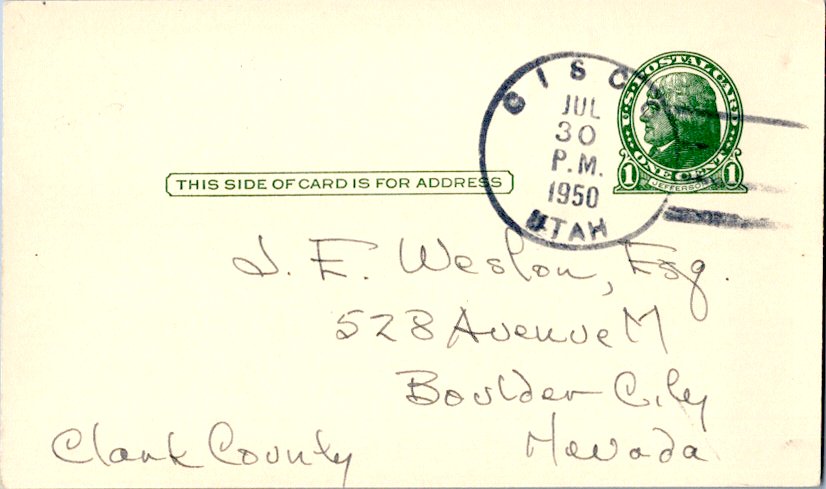 CISCO
JUL
30
P.M.
1950
UTAH
U.S. POSTAL CARD
ONE CENT
1 JEFFERSON 1
THIS SIDE OF CARD IS FOR ADDRESS
J. E. Weston, Esq.
528 Avenue M
Boulder City
Nevada
Clark County